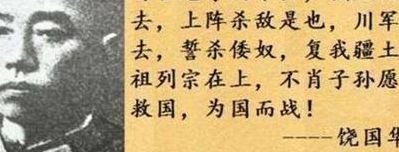 去，上阵杀敌是也，川军
去，誓杀倭奴，复我疆土
祖列宗在上，不肖子孙愿
救国，为国而战！
----饶国华